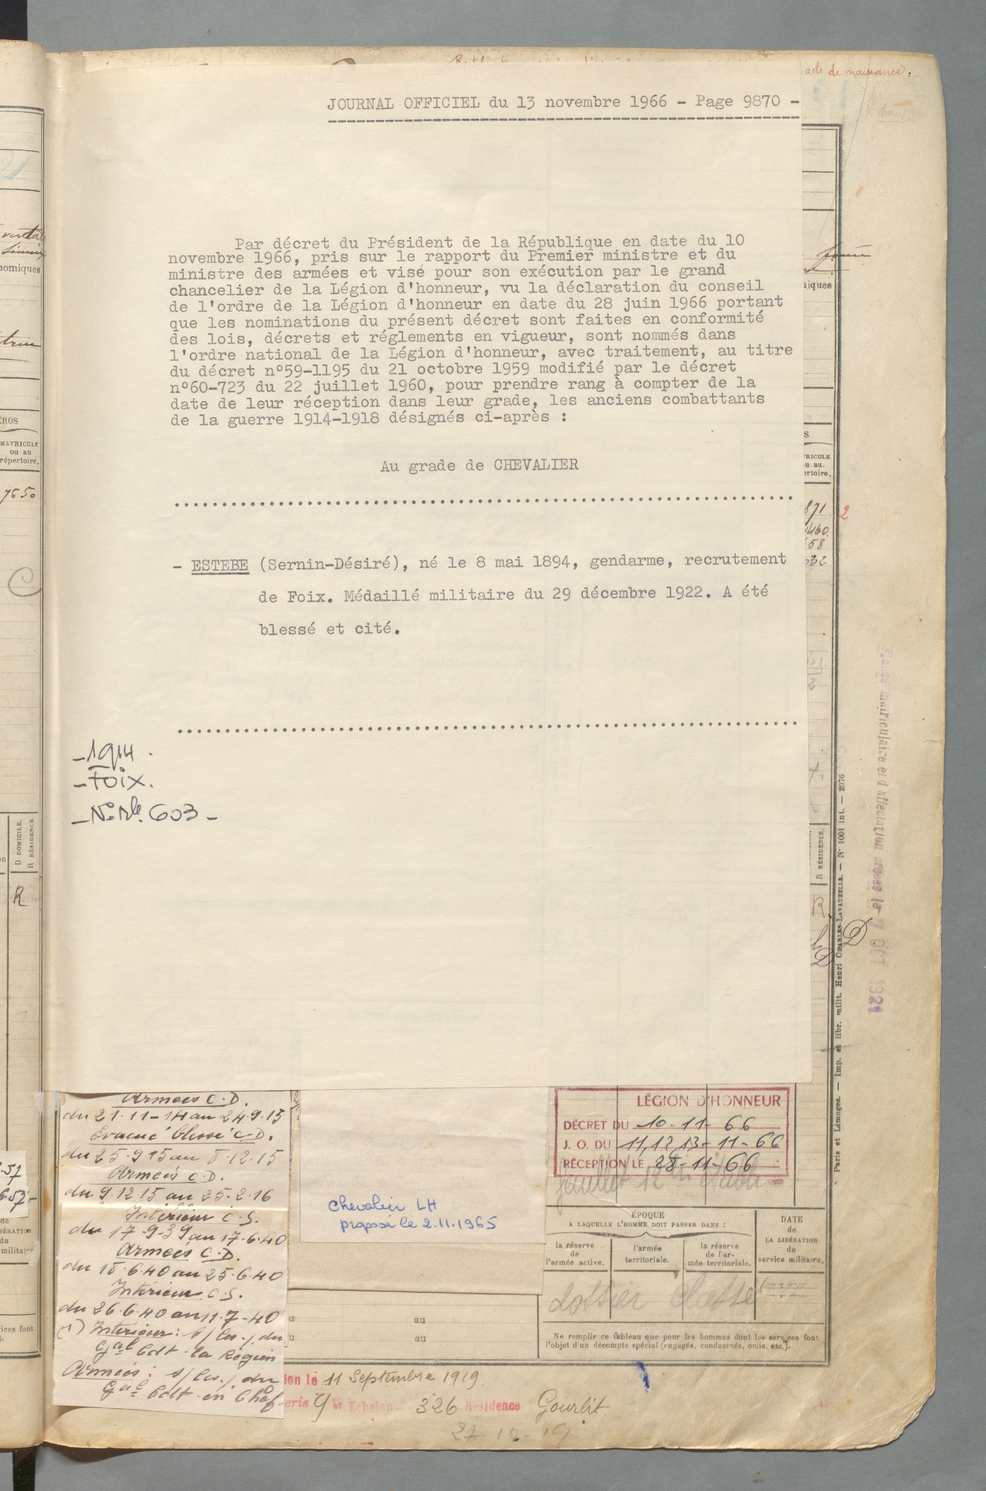 acte de naissance.
JOURNAL OFFICIEL du 13 novembre 1966 - Page 9870 -
Par décret du Président de la République en date du 10
novembre 1966, pris sur le rapport du Premier ministre et du
ministre des armées et visé pour son exécution par le grand
chancelier de la Légion d'honneur, vu la déclaration du conseil
de l'ordre de la Légion d'honneur en date du 28 juin 1966 portant
que les nominations du présent décret sont faites en conformité
des lois, décrets et réglements en vigueur, sont nommés dans
l'ordre national de la Légion d'honneur, avec traitement, au titre
du décret n°59-1195 du 21 octobre 1959 modifié par le décret
n°60-723 du 22 juillet 1960, pour prendre rang à compter de la
date de leur réception dans leur grade, les anciens combattants
de la guerre 1914-1918 désignés ci-après :
Au grade de CHEVALIER
- ESTEBE (Sernin-Désiré), né le 8 mai 1894, gendarme, recrutement
de Foix. Médaillé militaire du 29 décembre 1922. A été
blessé et cité.
- 1914.
- Foix.
- N° Mle 603 -
7650
R
D DOMICILE.
R RÉSIDENCE.
Armées C.D.
du 21-11-14 au 24.9.15
Evacué blessé C.D.
du 25.9.15 au 8.12.15
Armées C.D.
du 9.12.15 au 25.2.16
Intérieur C.S.
du 17-9-39 au 17.6.40
Armées C.D.
du 18.6.40 au 25.6.40
Intérieur C.S.
du 26.6.40 au 11.7-40
(1) Intérieur : s/ les / du
Gal Cdt la Région
Armées : s/ les / du
Gal Cdt en Chef
Chevalier LH
proposé le 2.11.1965
LÉGION D'HONNEUR
DÉCRET DU 10-11-66
J. O. DU 11,12,13-11-66
RÉCEPTION LE 28-11-66
juillet
ÉPOQUE
A LAQUELLE L'HOMME DOIT PASSER DANS :
DATE
de
LA LIBÉRATION
du
service militaire.
la réserve
de
l'armée active.
l'armée
territoriale.
la réserve
de l'ar-
mée territoriale.
dossier classé
au
au
Ne remplir ce tableau que pour les hommes dont les services font
l'objet d'un décompte spécial (engagés, condamnés, omis, etc.).
le 11 Septembre 1919
9 Echelon 326 Résidence Gourbit
Paris et Limoges. — Imp. et libr. milit. Henri CHARLES-LAVAUZELLE. — N° 1001 int. — 2076
matriculaire et d'affectation le 7 OCT 1921